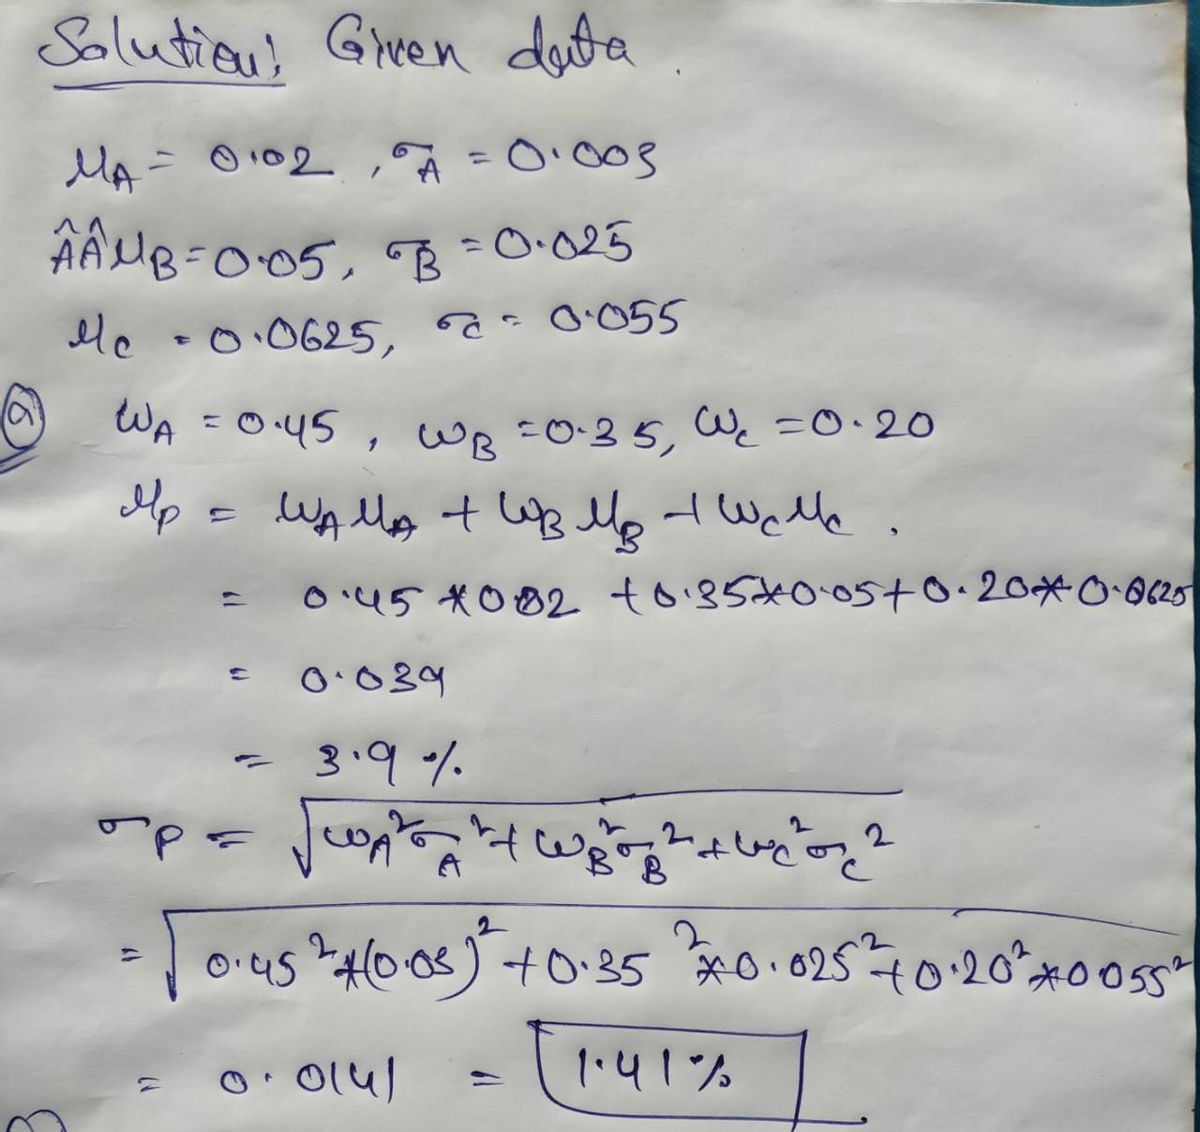 Solution: Given data.
μA = 0.02, σA = 0.003
ÂÂμB = 0.05, σB = 0.025
μc = 0.0625, σc = 0.055
(a) WA = 0.45, WB = 0.35, Wc = 0.20
μp = WAμA + WBμB + Wcμc.
= 0.45*002 + 0.35*0.05 + 0.20*0.0625
= 0.039
= 3.9 %.
σp = √(WA²σA² + WB²σB² + Wc²σc²)
= √(0.45²*(0.03)² + 0.35²*0.025² + 0.20²*0.055²)
= 0.0141 = 1.41%